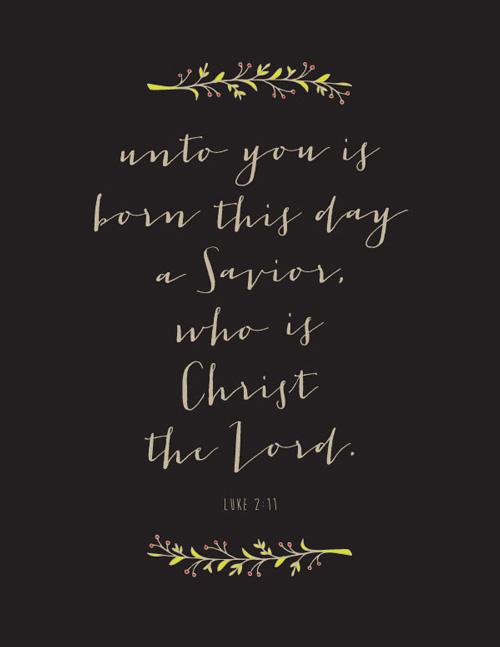 unto you is
born this day
a Savior,
who is
Christ
the Lord.
LUKE 2:11